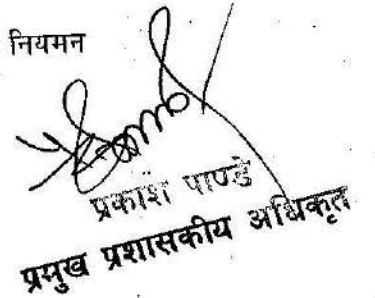 नियमन
प्रकाश पाण्डे
प्रमुख प्रशासकीय अधिकृत